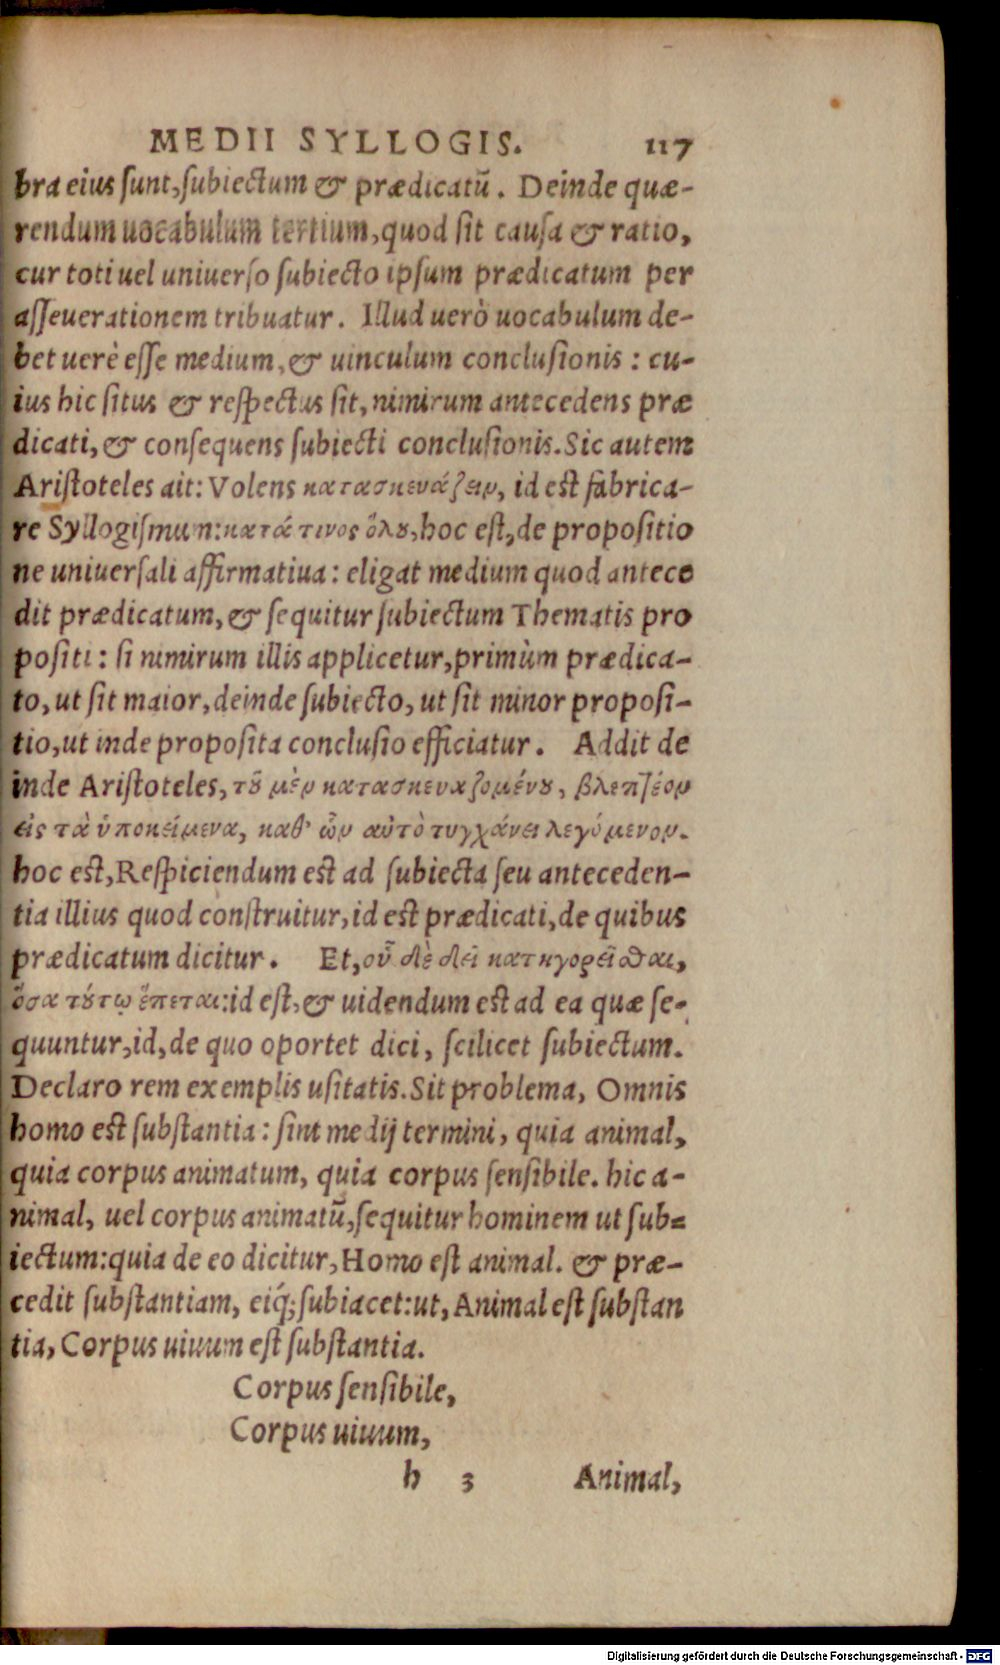 MEDII SYLLOGIS. 117
bra eius sunt, subiectum & prædicatũ. Deinde quæ-
rendum uocabulum tertium, quod sit causa & ratio,
cur toti uel uniuerso subiecto ipsum prædicatum per
asseuerationem tribuatur. Illud uerò uocabulum de-
bet uerè esse medium, & uinculum conclusionis: cu-
ius hic situs & respectus sit, nimirum antecedens præ
dicati, & consequens subiecti conclusionis. Sic autem
Aristoteles ait: Volens κατασκευάζειν, id est fabrica-
re Syllogismum: κατά τινος ὅλου, hoc est, de propositio
ne uniuersali affirmatiua: eligat medium quod antece
dit prædicatum, & sequitur subiectum Thematis pro
positi: si nimirum illis applicetur, primùm prædica-
to, ut sit maior, deinde subiecto, ut sit minor proposi-
tio, ut inde proposita conclusio efficiatur. Addit de
inde Aristoteles, τοῦ μὲν κατασκευαζομένου, βλεπτέον
εἰς τὰ ὑποκείμενα, καθ' ὧν αὐτὸ τυγχάνει λεγόμενον.
hoc est, Respiciendum est ad subiecta seu anteceden-
tia illius quod construitur, id est prædicati, de quibus
prædicatum dicitur. Et, οὗ δὲ δεῖ κατηγορεῖσθαι,
ὅσα τούτῳ ἕπεται: id est, & uidendum est ad ea quæ se-
quuntur, id, de quo oportet dici, scilicet subiectum.
Declaro rem exemplis usitatis. Sit problema, Omnis
homo est substantia: sint medij termini, quia animal,
quia corpus animatum, quia corpus sensibile. hic a-
nimal, uel corpus animatũ, sequitur hominem ut sub-
iectum: quia de eo dicitur, Homo est animal. & præ-
cedit substantiam, eiq́; subiacet: ut, Animal est substan
tia, Corpus uiuum est substantia.
Corpus sensibile,
Corpus uiuum,
h 3 Animal,
Digitalisierung gefördert durch die Deutsche Forschungsgemeinschaft - DFG